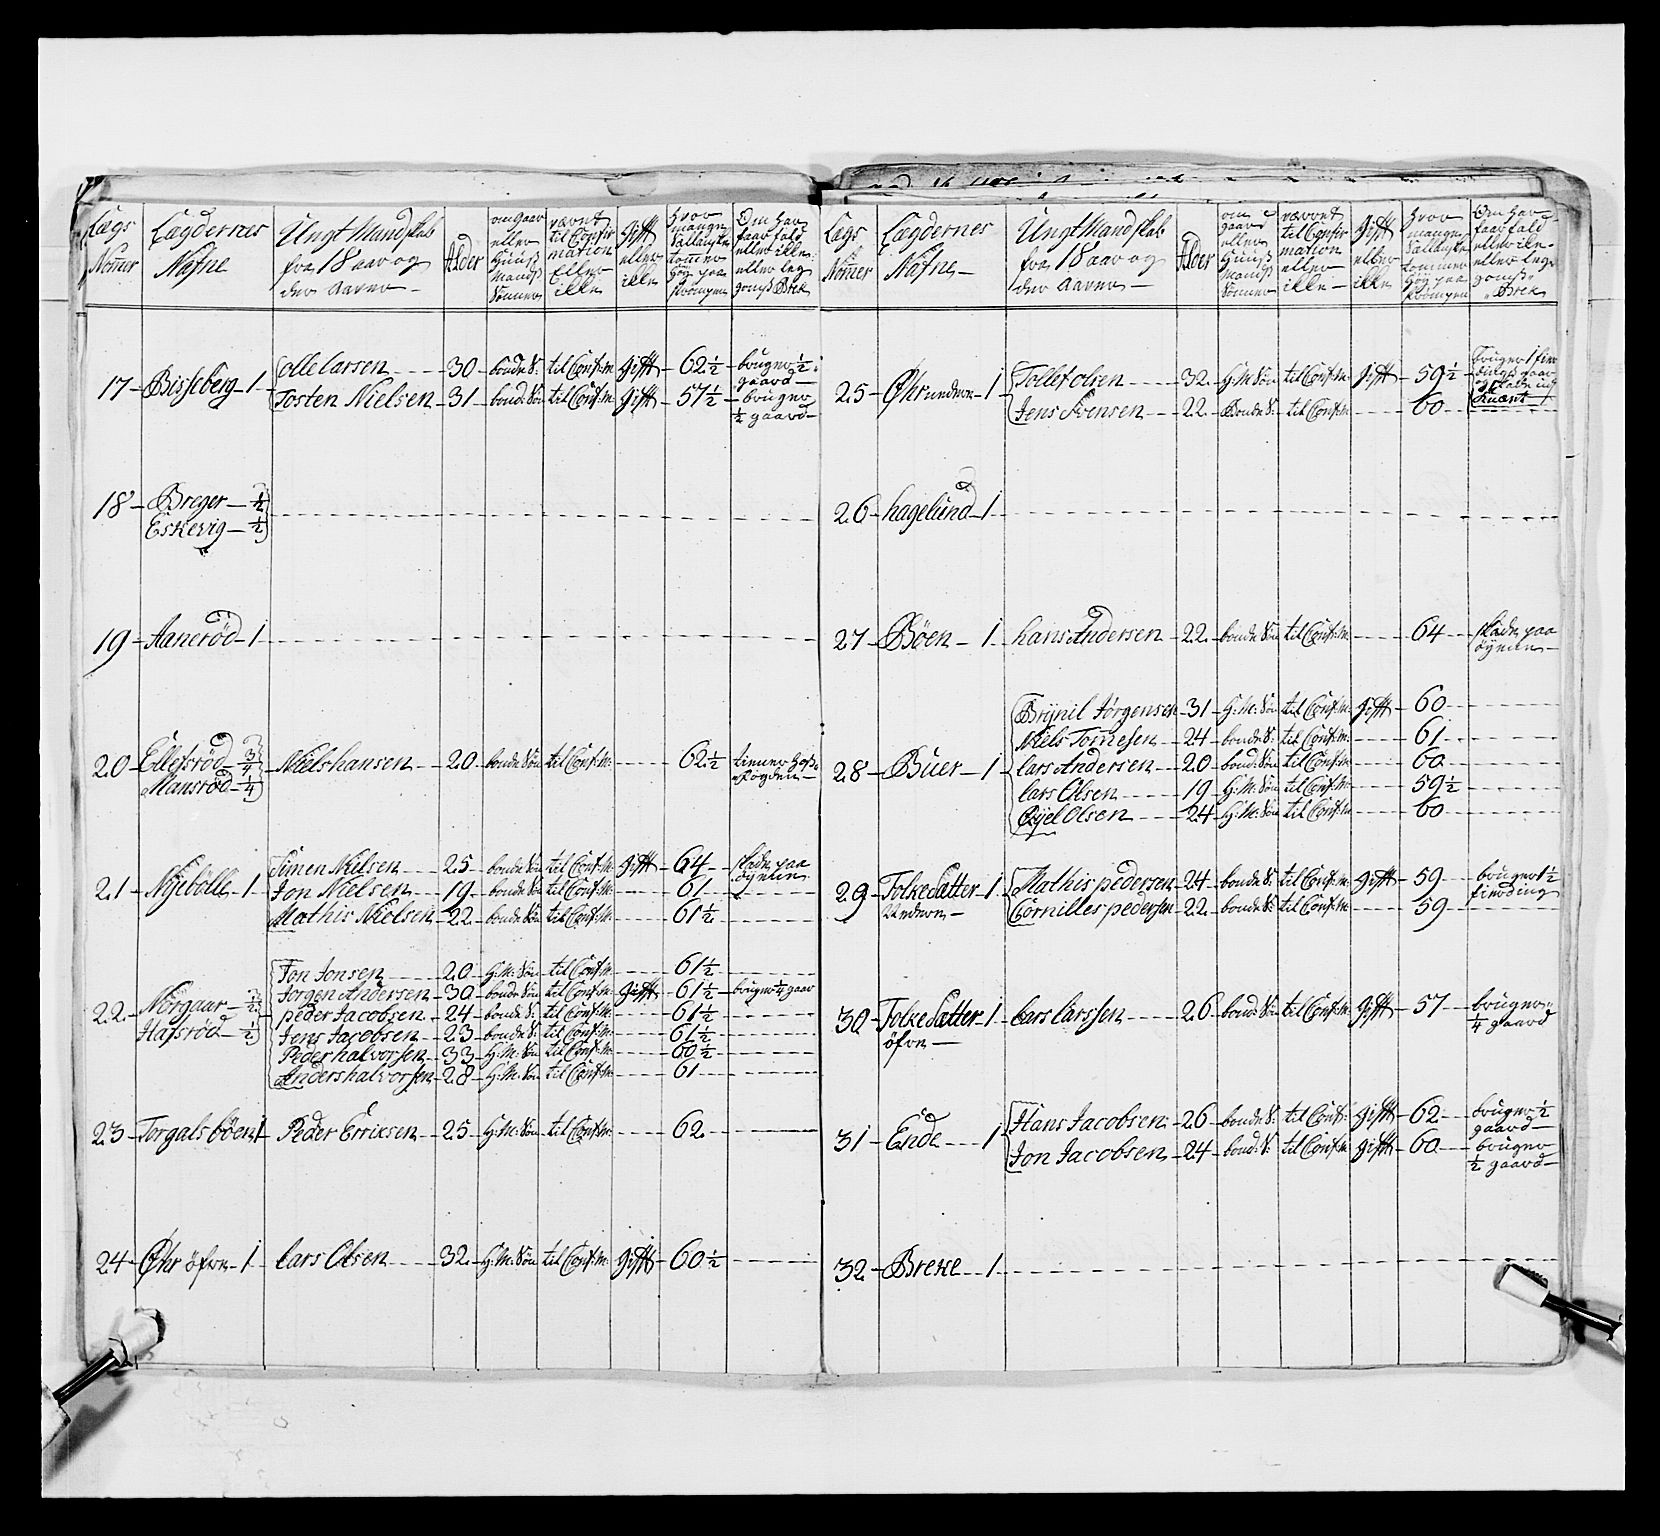 Lægs Nommer | Lægdernes Nafne | Ungt Mandskab fra 18 aar og der aarer | Alder | om gaar eller Huuß mandß Sønner | værret til Confirmation Eller ikke | gift eller ikke | hvor mange Sællandske tommer høg paa strømper | Om har faar fald eller ikke eller leg gomß Brek
17 – Bisseberg – 1 | olle larsen | 30 | bonde S: | til Conf:m | gift | 62 ½ | bruger ½ gaard
Tosten Nielsen | 31 | bond: Søn | til Conf:m | gift | 57 ½ | bruger ½ gaard
18 – Breger – ½
Eskevig – ½
19 – Aanerød – 1
20 – Ellefsrød – ¾
Mansrød – ¼ | Niels hansen | 20 | bonde Søn | til Conf:m | 62 ½ | tienner hoß fogden
21 – Nyebølle – 1 | Simen Nielsen | 25 | bonde Søn | til Conf:m | gift | 64 | skade paa øynene
Jon Nielsen | 19 | bonde Søn | til Conf:m | 61
Mathis Nielsen | 22 | bonde Søn | til Conf:m | 61 ½
22 – Nørgaur – ½
Hafsrød – ½ | Jon Jonsen | 20 | H: M: Søn | til Conf:m | 61 ½
Jørgen Andersen | 30 | bonde Søn | til Conf:m | gift | 61 ½ | bruger ¼ gaar
peder Jacobsen | 24 | bonde S: | til Conf:m | 61 ½
Jens Jacobsen | 23 | bonde S: | til Conf:m | 61 ½
Peder halvorsen | 33 | H: M: Søn | til Conf:m | 60 ½
Anders halvorsen | 28 | H: M: Søn | til Conf:m | 61
23 – Torgals bøen 1 | Peder Ericksen | 25 | H: M: Søn | til Conf:m | 62
24 – Øhr øfre – 1 | Lars Olsen | 32 | H: M: Søn | til Conf:m | gift | 60 ½
Lægs Nommer | Lægdernes Nafne | Ungt Mandskab fra 18 aar og der aarer | Alder | om gaard eller Huuß mandß Sønner | værret til Confirmation eller ikke | gift eller ikke | hvor mange Sællandske tommer høg paa strømper | Om har faar fald eller ikke eller leg gomß Brek
25 – Øhr nedere – 1 | Tollef olsen | 32 | H: M: Søn | til Conf:m | gift | 59 ½ | bruger 1
Jens Svensen | 22 | Bonde S: | til Conf:m | 60
26 – hagelund – 1
27 – Bøen – 1 | hans Andersen | 22 | bonde Søn | til Conf:m | 64 | skade paa øynene
28 – Buer – 1 | Brynil Jørgensen | 31 | H: M: Søn | til Conf:m | gift | 60
Niels Tomesen | 24 | bonde S: | til Conf:m | 61
lars Andersen | 20 | bond: Søn | til Conf:m | 60
lars Olsen | 19 | H: M: Søn | til Conf:m | 59 ½
Olsen | 24 | H: M: Søn | til Conf:m | 60
29 – Folkesætter – 1
Nedere | Mathis pedersen | 24 | bonde S: | til Conf:m | gift | 59 | bruger 1 ½ fierding
Cornilles pedersen | 22 | bonde S: | til Conf:m | 59
30 – Folkesætter – 1
øfre | Lars larssen | 26 | bond S: | til Conf:m | gift | 57 | bruger ¼ gaard
31 – Ende – 1 | Hans Jacobsen | 26 | bonde S: | til Conf: | gift | 62 | bruger ½ gaard
Jon Jacobsen | 24 | bond: S: | til Conf:m | gift | 60 | bruger ½ gaard
32 – Brecke – 1